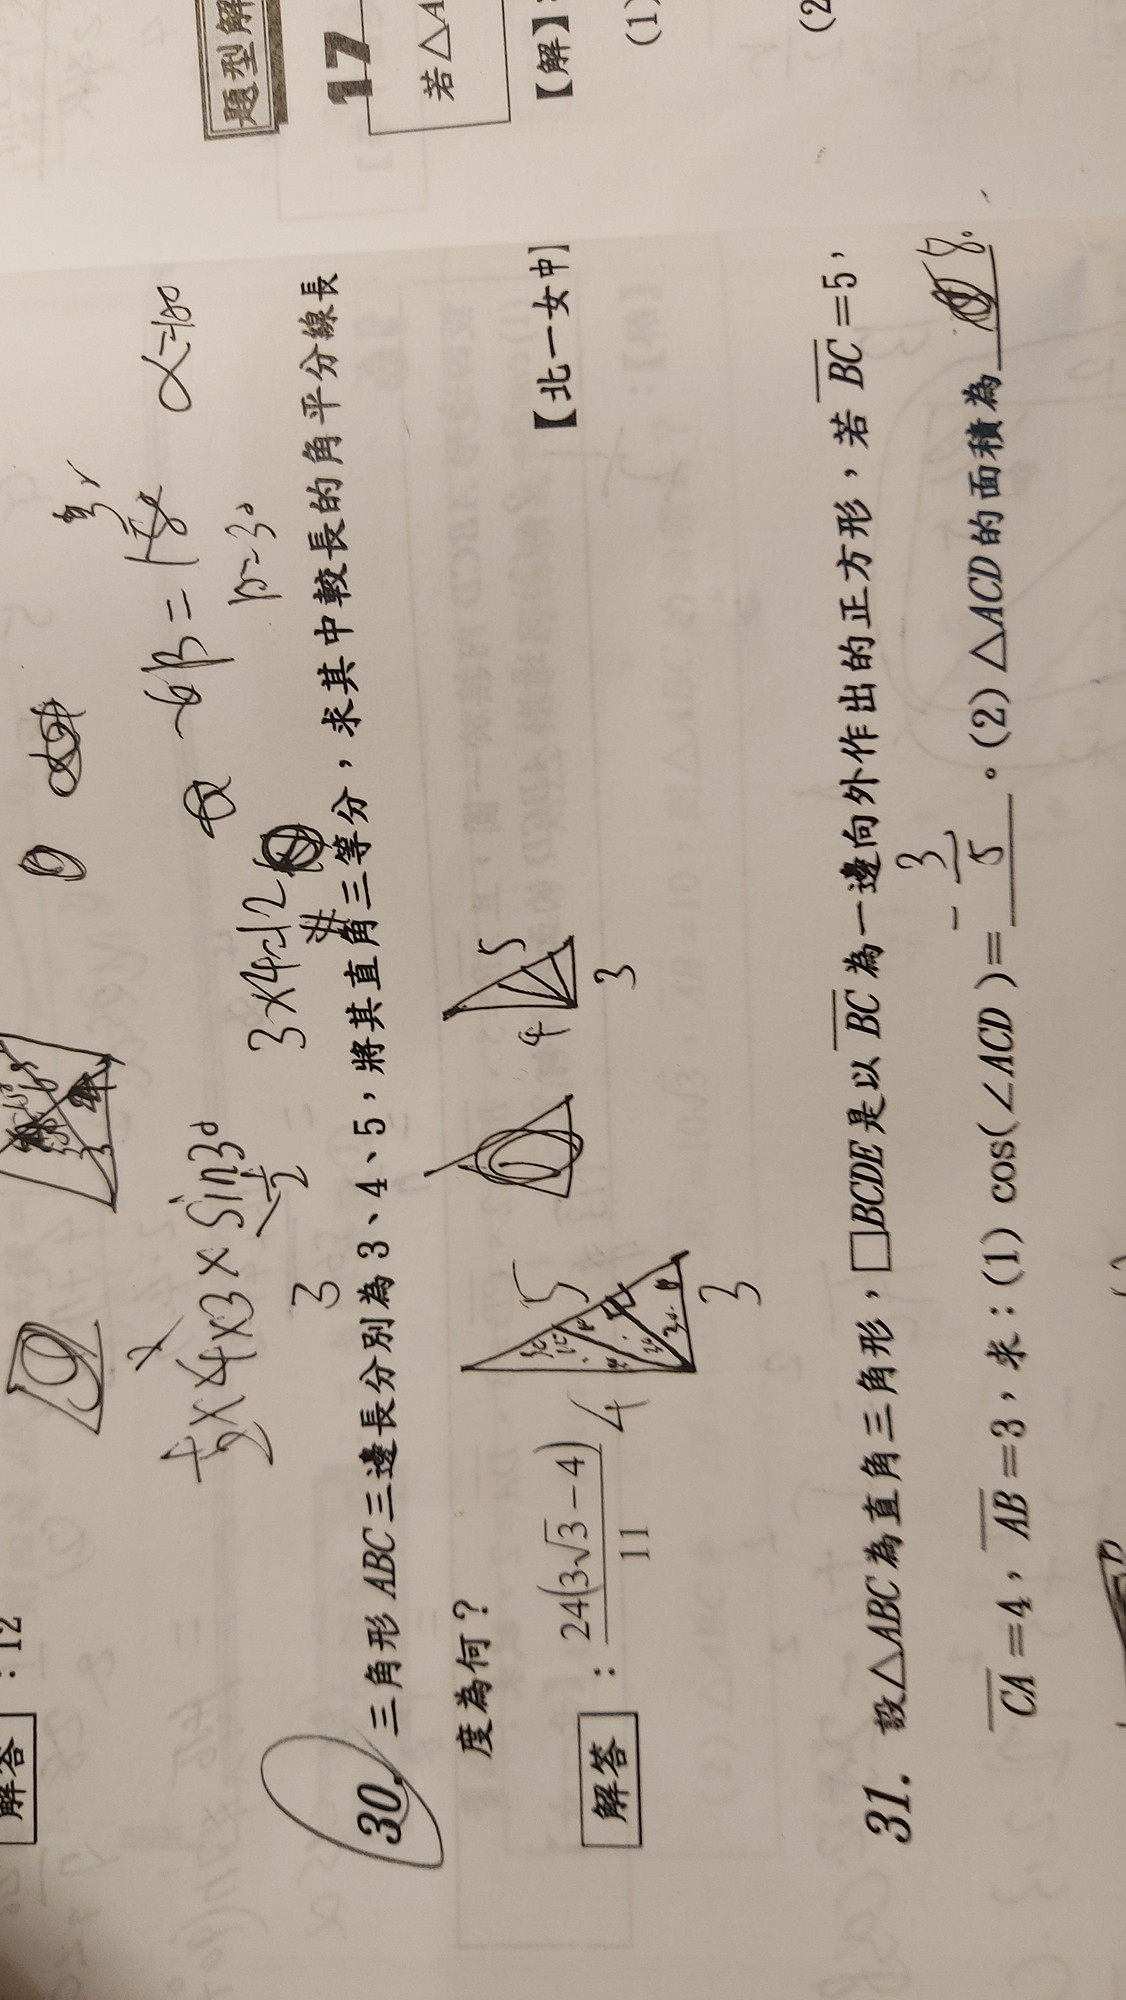 題型解
17
若△A
【解】:
(1)
(2
解答 : 12
α=180
β=30
1/2×4×3×sin30
1/2
3
3×4=12
#
30. 三角形 ABC 三邊長分別為 3、4、5,將其直角三等分,求其中較長的角平分線長
度為何?
【北一女中】
解答 : 24(3√3-4)/11
4
5
3
4
5
3
31. 設△ABC 為直角三角形,□BCDE 是以 BC 為一邊向外作出的正方形,若 BC=5,
CA=4,AB=3,求:(1) cos(∠ACD)= -3/5 。(2) △ACD 的面積為 8 。